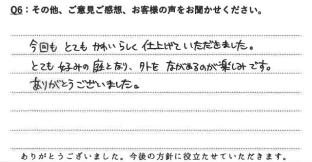 Q6：その他、ご意見ご感想、お客様の声をお聞かせください。
今回も とても かわいらしく 仕上げて いただきました。
とても 好みの 庭となり、外を ながめるのが 楽しみです。
ありがとうございました。
ありがとうございました。今後の方針に役立たせていただきます。